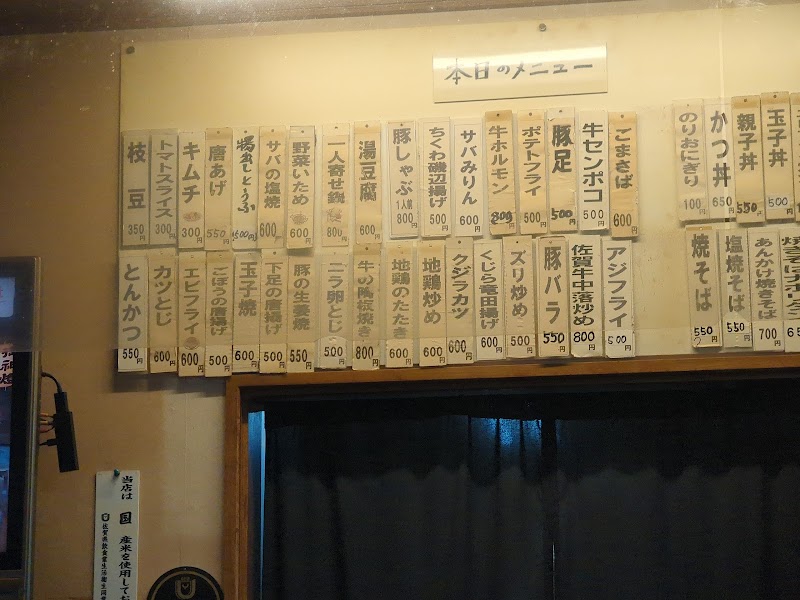 本日のメニュー
枝豆 350円
トマトスライス 300円
キムチ 300円
唐あげ 550円
揚出しとうふ 500円
サバの塩焼 600円
野菜いため 600円
一人寄せ鍋 800円
湯豆腐 600円
豚しゃぶ 1人前 800円
ちくわ磯辺揚げ 500円
サバみりん 600円
牛ホルモン 800円
ポテトフライ 500円
豚足 500円
牛センポコ 500円
ごまさば 600円
のりおにぎり 100円
かつ丼 650円
親子丼 550円
玉子丼 500円
とんかつ 550円
カツとじ 600円
エビフライ 600円
ごぼうの唐揚げ 500円
玉子焼 600円
下足の唐揚げ 500円
豚の生姜焼 550円
ニラ卵とじ 500円
牛の陶板焼き 800円
地鶏のたたき 600円
地鶏炒め 600円
クジラカツ 600円
くじら竜田揚げ 600円
ズリ炒め 500円
豚バラ 550円
佐賀牛中落炒め 800円
アジフライ 500円
焼そば 550円
塩焼そば 550円
あんかけ焼きそば 700円
当店は 国産米を使用してお
佐賀県飲食業生活衛生同業